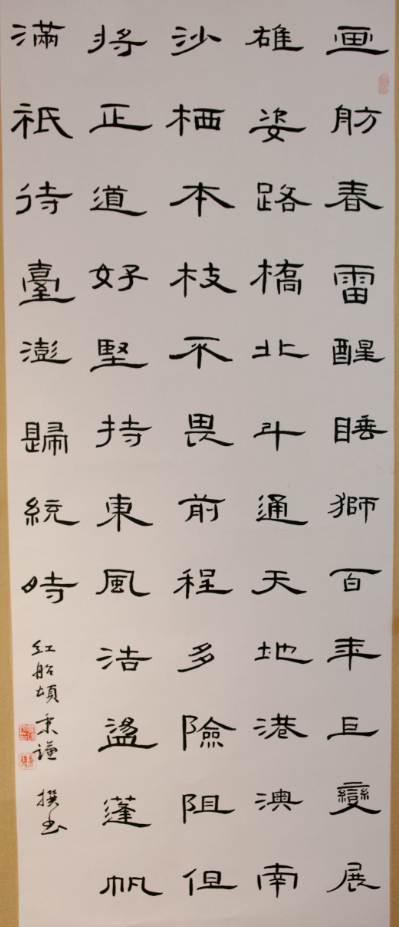 画舫春雷醒睡獅百年巨變展
雄姿路橋北斗通天地港澳南
沙栖本枝不畏前程多險阻但
将正道好堅持東風浩盪蓬帆
滿祇待臺澎歸統時
红船頌 秉谦 撰书